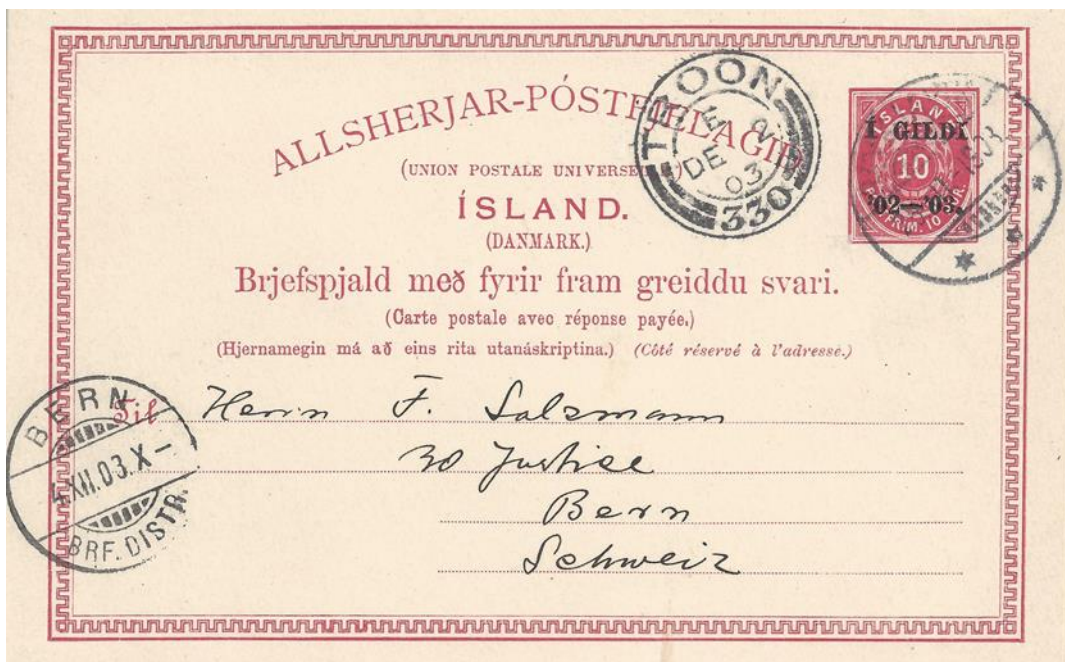 ALLSHERJAR-PÓSTFJELAGIÐ
(UNION POSTALE UNIVERSELLE)
ÍSLAND.
(DANMARK.)
Brjefspjald með fyrir fram greiddu svari.
(Carte postale avec réponse payée.)
(Hjernamegin má að eins rita utanáskriptina.) (Côté réservé à l'adresse.)
TROON
E
DE 2
03
330
ÍSLAND
Í GILDI
10
'02—'03.
PÓSTFRIM. 10 AUR.
1903
Til Herrn F. Salzmann
30 Justise
Bern
Schweiz
BERN
4.XII.03.X-
BRF. DISTR.